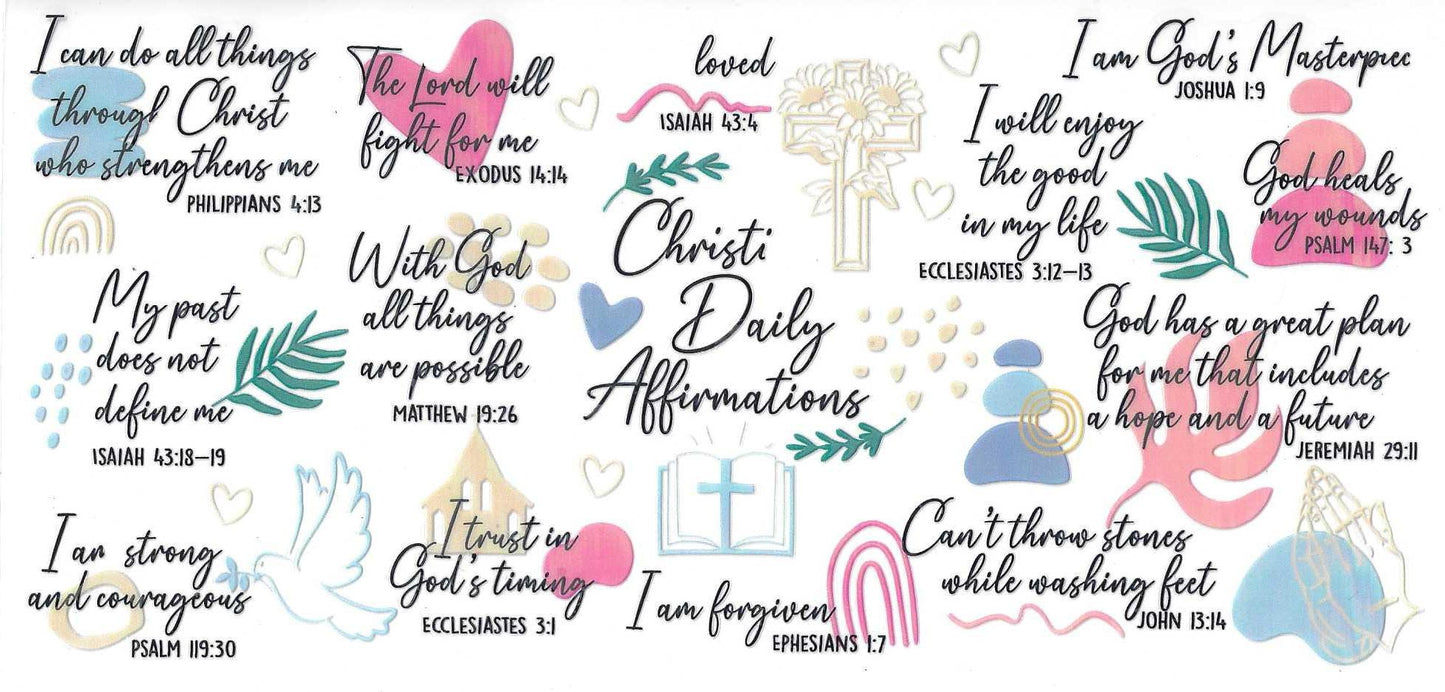 I can do all things
through Christ
who strengthens me
PHILIPPIANS 4:13
The Lord will
fight for me
EXODUS 14:14
loved
ISAIAH 43:4
I am God's Masterpiec
JOSHUA 1:9
I will enjoy
the good
in my life
ECCLESIASTES 3:12–13
God heals
my wounds
PSALM 147: 3
My past
does not
define me
ISAIAH 43:18–19
With God
all things
are possible
MATTHEW 19:26
Christi
Daily
Affirmations
God has a great plan
for me that includes
a hope and a future
JEREMIAH 29:11
I ar strong
and courageous
PSALM 119:30
I trust in
God's timing
ECCLESIASTES 3:1
I am forgiven
EPHESIANS 1:7
Can't throw stones
while washing feet
JOHN 13:14